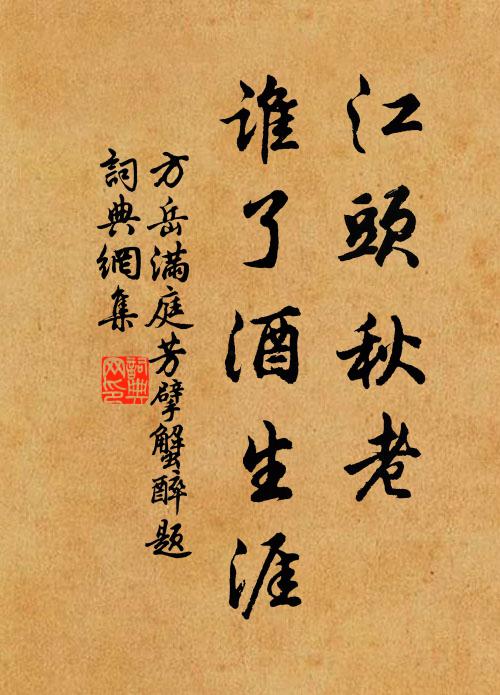 江頭秋老
誰了酒生涯
方岳滿庭芳擘蟹醉題
詞典網集
詞典网印